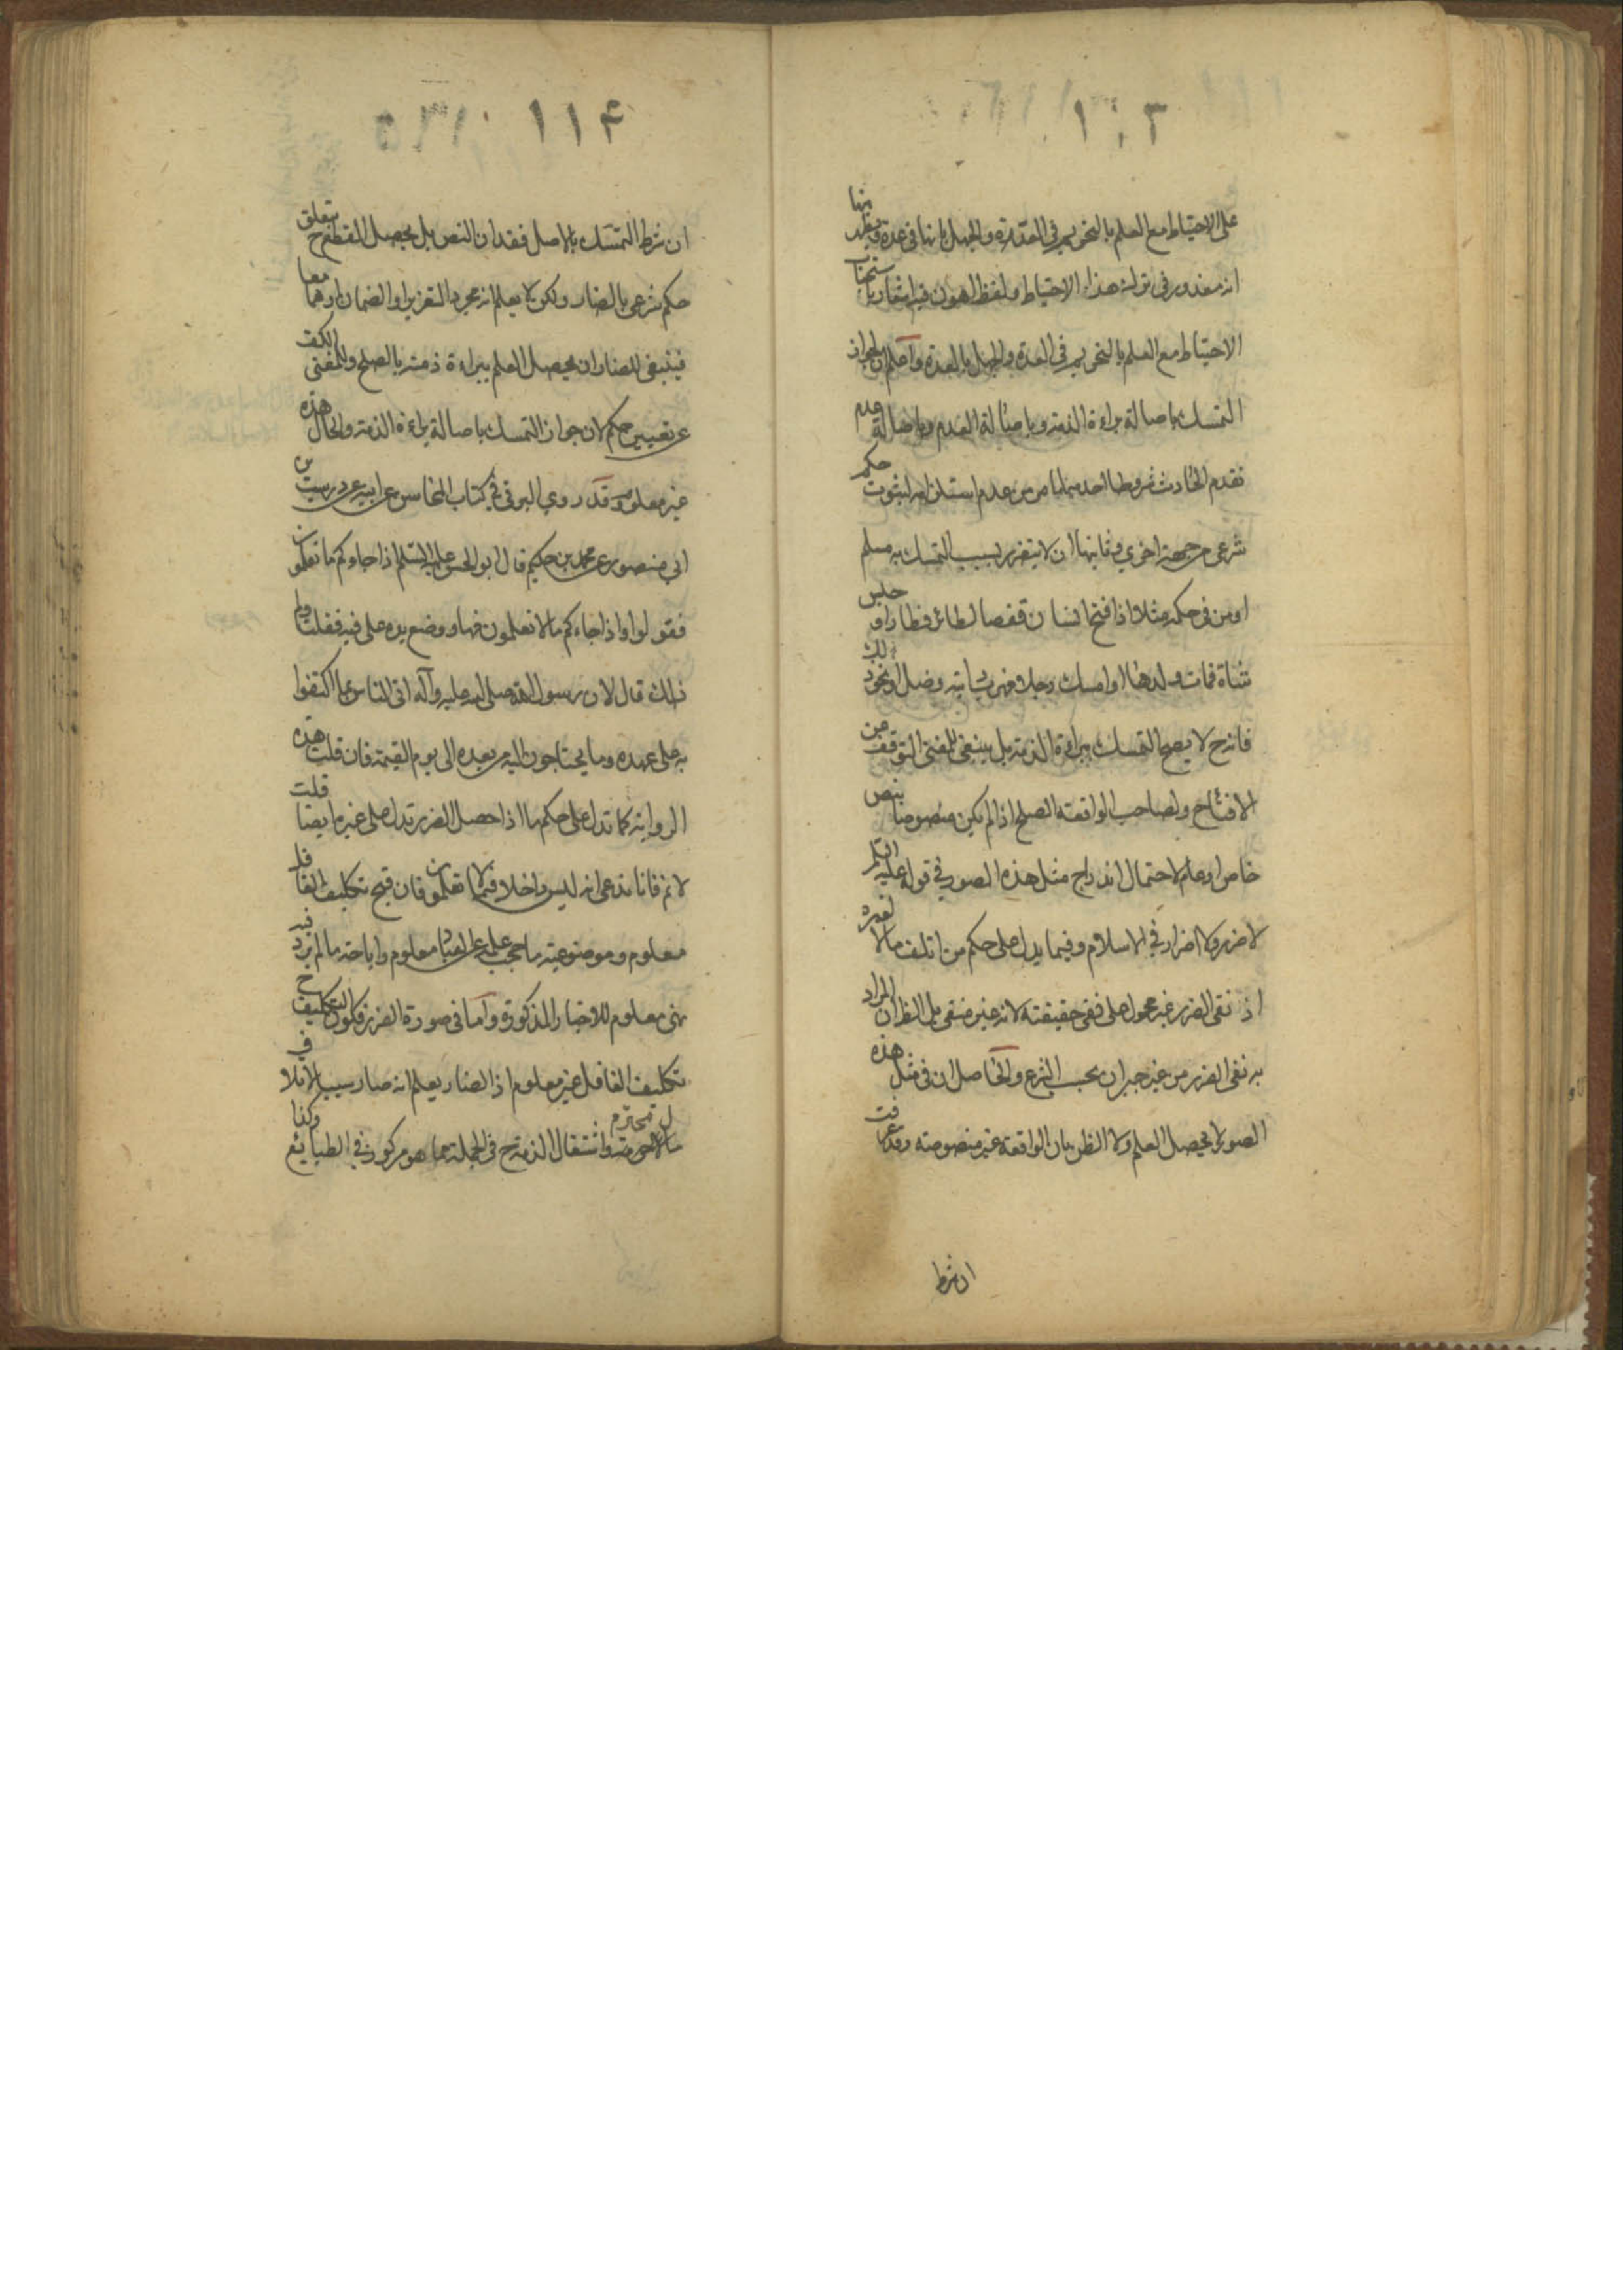 ١٠٣
على الاحتياط مع العلم بالتحريم في العدة والجهل بانها في عدة ويظهر منها
انه معذور في ترك هذا الاحتياط ولفظ اهون فيه اشعار باستحباب
الاحتياط مع العلم بالتحريم في العدة والجهل بالعدة واعلم ان لجواز
التمسك باصالة براءة الذمة وباصالة العدم وباصالة عدم
تقدم الحادث شروطا احدها ما مر من عدم استلزامه لثبوت حكم
شرعى من جهة اخرى وثانيها ان لا يتضرر بسبب التمسك به مسلم
او من في حكمه مثلا اذا فتح انسان قفصا لطائر فطار او حبس
شاة فمات ولدها او امسك رجلا فهربت دابته وضل او نحو ذلك
فانه ح لا يصح التمسك ببراءة الذمة بل ينبغى للمفتى التوقف عن
الافتاح ولصاحب الواقعة الصلح اذا لم يكن منصوصا بنص
خاص او عام لاحتمال اندراج مثل هذه الصور في قوله عليه السلم
لا ضرر ولا اضرار في الاسلام وفيما يدل على حكم من اتلف مالا لغيره
اذ نفى الضرر غير محمول على نفى حقيقته لانه غير منفى بل الظ ان المراد
به نفى الضرر من غير جبران بحسب الشرع والحاصل ان في مثل هذه
الصور لا يحصل العلم ولا الظن بان الواقعة غير منصوصة وقد عرفت
ان شرط
١١۴
ان شرط التمسك بالاصل فقدان النص بل يحصل القطع ح بتعلق
حكم شرعى بالضار ولكن لا يعلم انه مجرد التعزير او الضمان او هما معا
فينبغى للضار ان يحصل العلم ببراءة ذمته بالصلح وللمفتى الكف
عن تعيين حكم لان جواز التمسك باصالة براءة الذمة والحال هذه
غير معلوم وقد روى البرقي في كتاب المحاسن عن ابيه عن درست بن
ابي منصور عن محمد بن حكيم قال ابو الحسن عليه السلم اذا جاءكم ما تعلمون
فقولوا واذا جاءكم ما لا تعلمون فها ووضع يده على فيه فقلت ولم
ذلك قال لان رسول الله صلى الله عليه وآله اتى الناس بما اكتفوا
به على عهده وما يحتاجون اليه من بعده الى يوم القيمة فان قلت هذه
الرواية كما تدل على حكم ما اذا حصل الضرر تدل على غيره ايضا قلت
لا نم فانا ندعى انه ليس داخلا فيما لا تعلمون فان قبح تكليف الغافل
معلوم وموضوعية ما حجب علمه عن العباد معلوم واباحة ما لم يرد فيه
نهى معلوم للاخبار المذكورة واما في صورة الضرر فكون التكليف ح
تكليف الغافل غير معلوم اذ الضار يعلم انه صار سببا لاتلاف
مال محترم واشتغال الذمة ح في الجملة مما هو مركوز في الطبايع وكذا